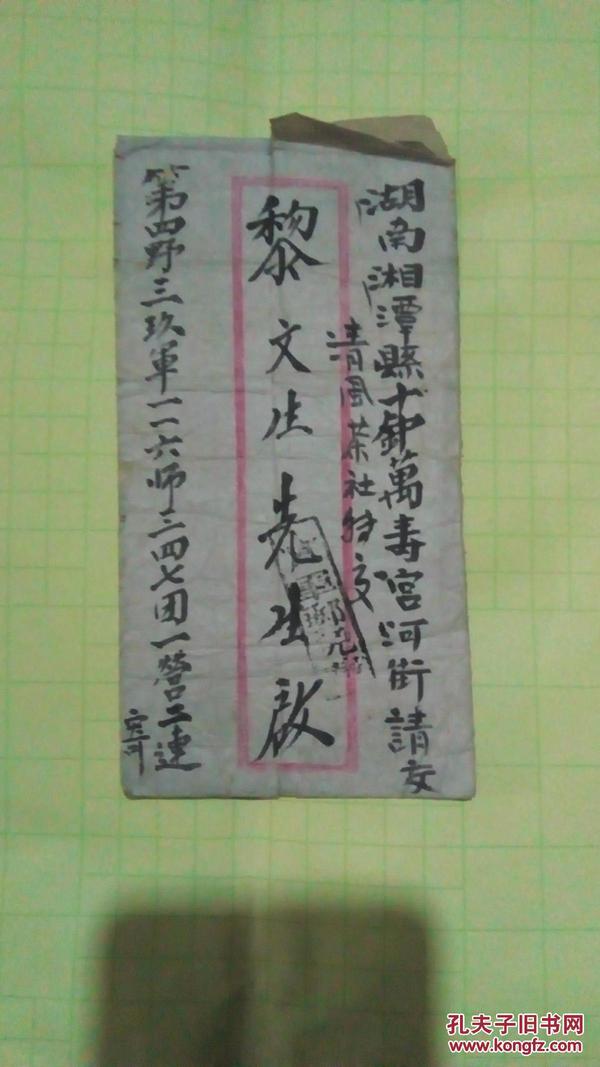 湖南湘潭縣十八總萬壽宮河街請交
清風茶社特交
黎文生先生啟
第四野三玖軍一一六师三四七团一營二連
寄
軍郵免
孔夫子旧书网
www.kongfz.com